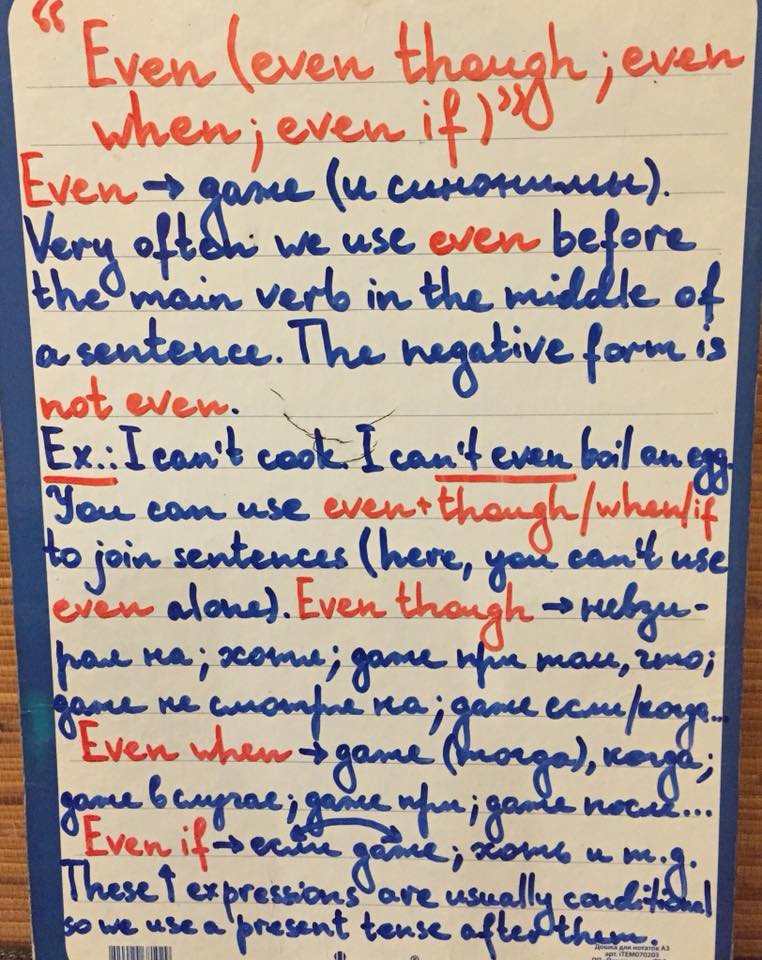 “Even (even though; even
when; even if)”
Even → даже (и синонимы).
Very often we use even before
the main verb in the middle of
a sentence. The negative form is
not even.
Ex.: I can't cook. I can't even boil an egg.
You can use even + though/when/if
to join sentences (here, you can't use
even alone). Even though → невзи-
рая на; хотя; даже при том, что;
даже не смотря на; даже если/когда...
Even when → даже (тогда), когда;
даже в случае; даже при; даже после...
Even if → если даже; хоть и т.д.
These ↑ expressions are usually conditional
so we use a present tense after them.
Дошка для нотаток А3
арт. iTEM070203